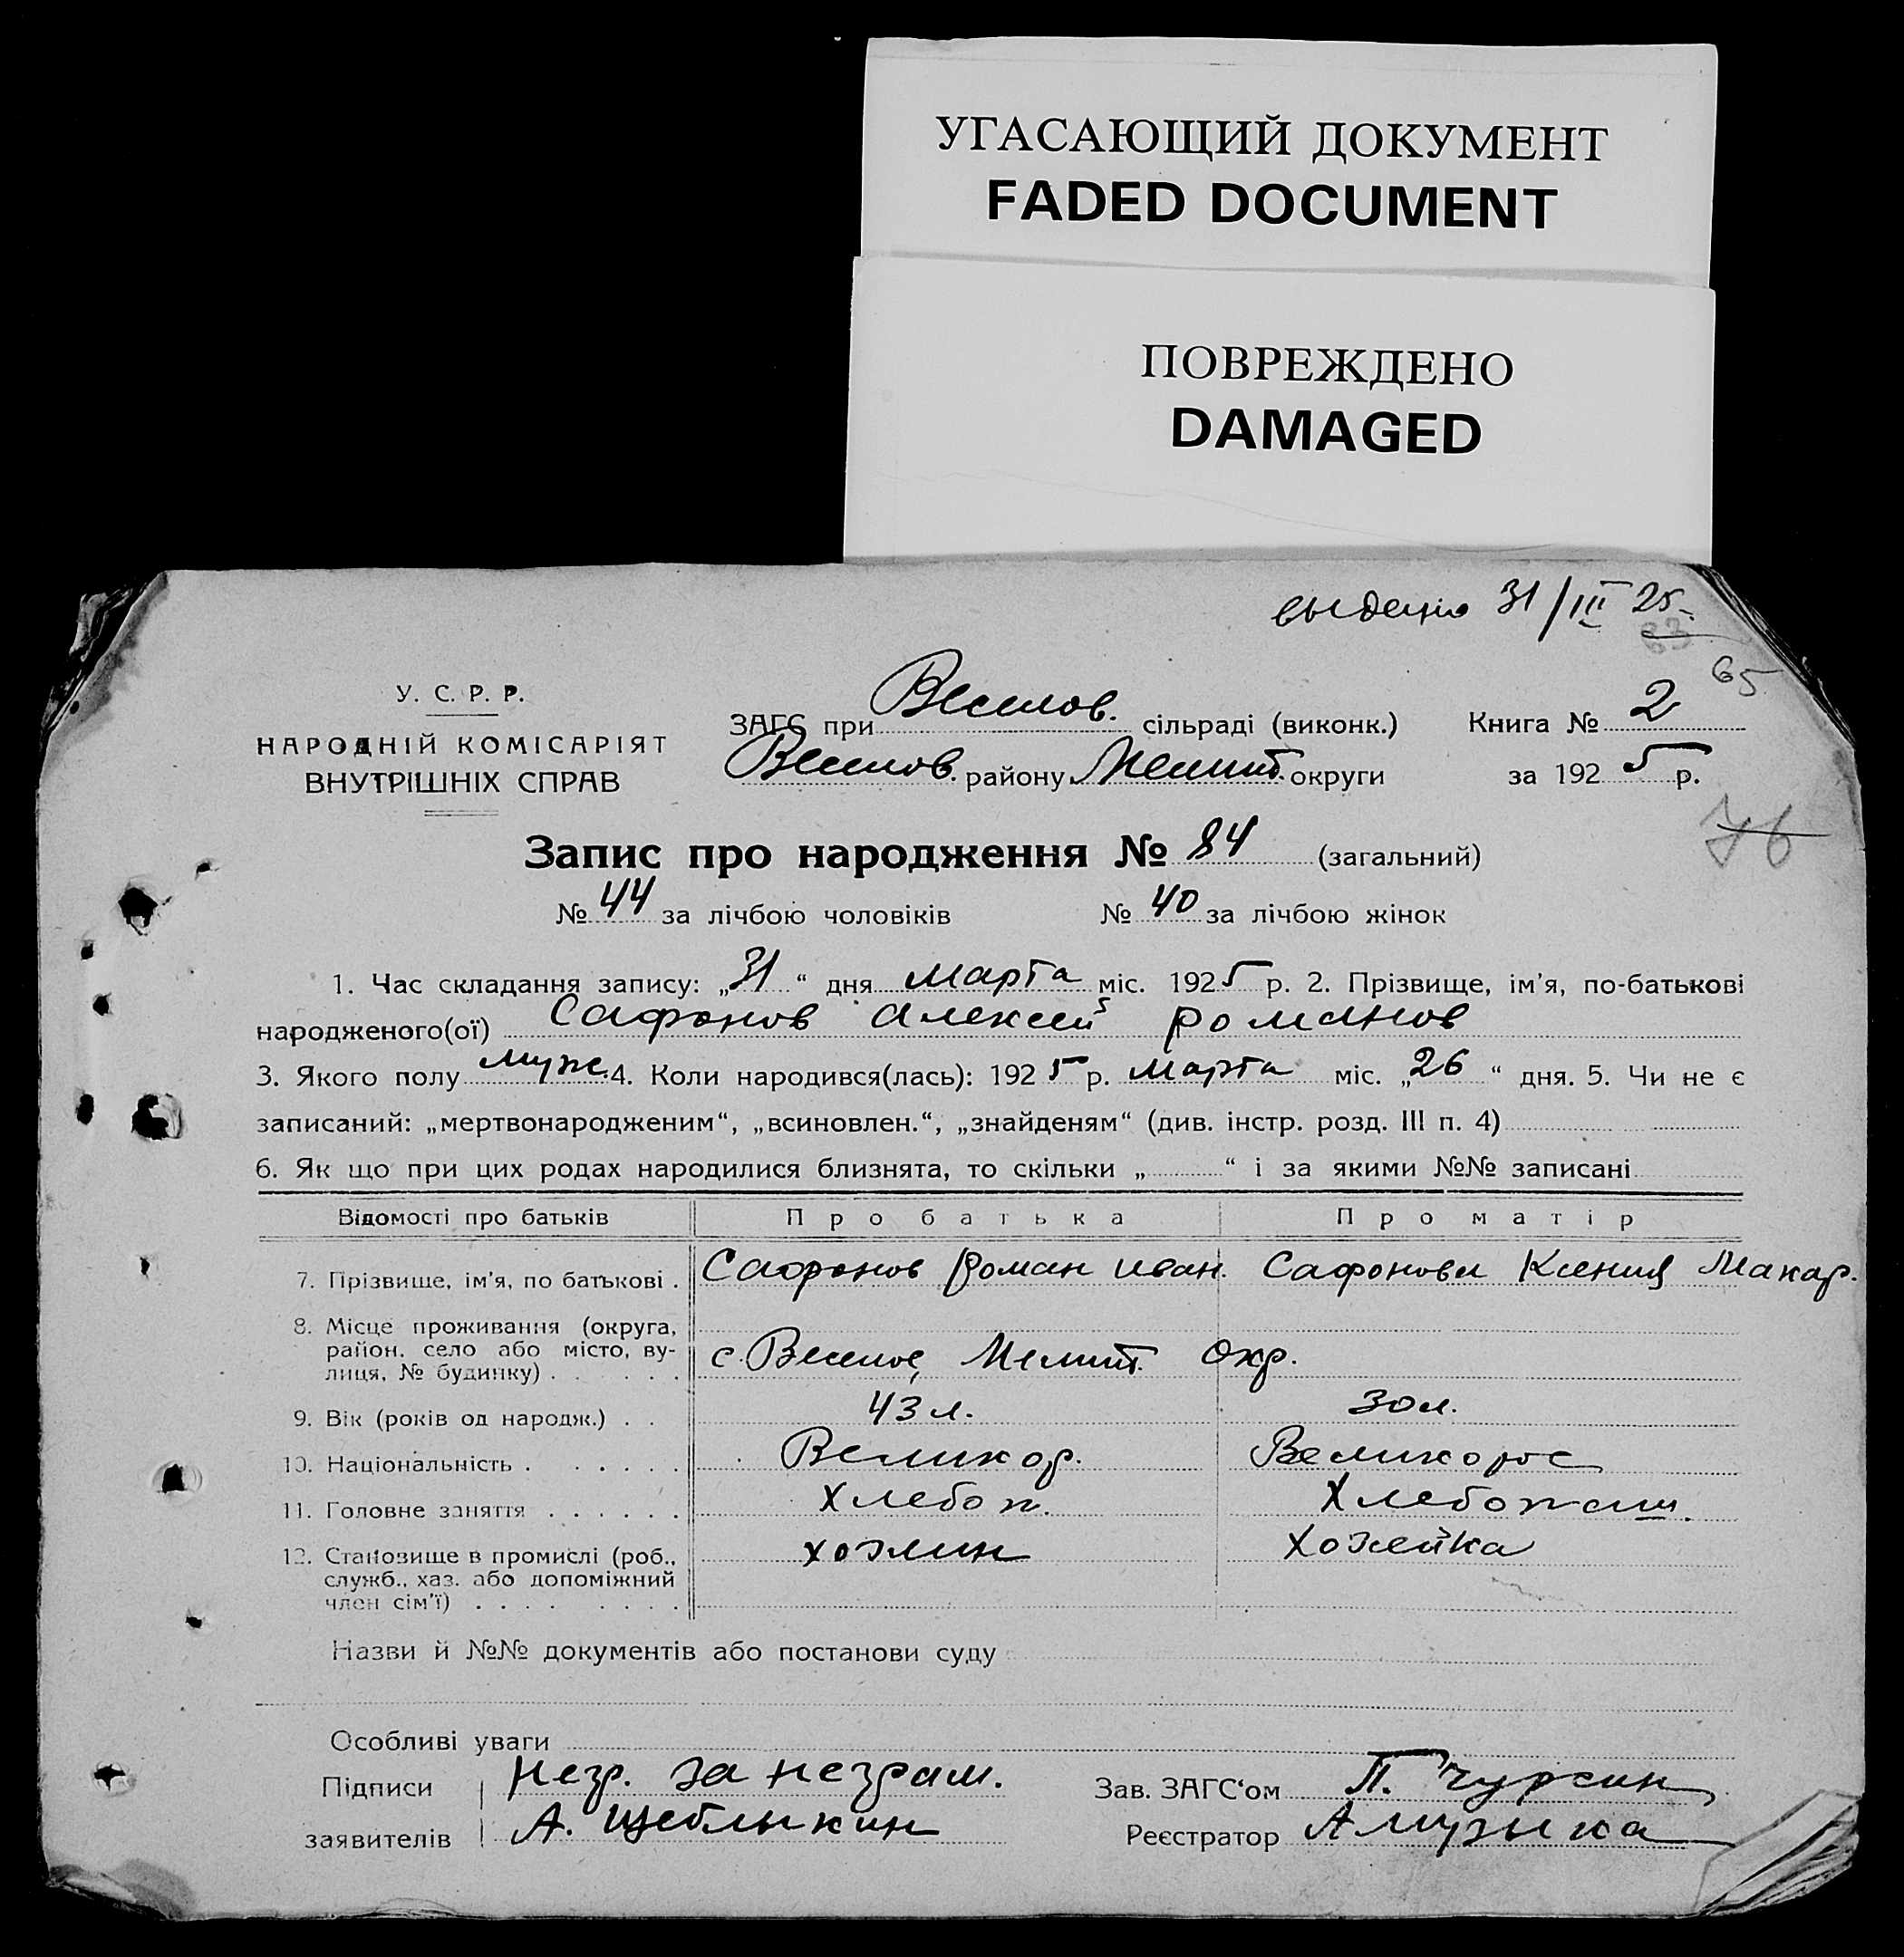 УГАСАЮЩИЙ ДОКУМЕНТ
FADED DOCUMENT
ПОВРЕЖДЕНО
DAMAGED
выдано 31/III 25
83
65
У. С. Р. Р.
НАРОДНІЙ КОМІСАРІЯТ
ВНУТРІШНІХ СПРАВ
ЗАГС при Веселов. сільраді (виконк.) Книга № 2
Веселов. району Мелит. округи за 1925 р.
76
Запис про народження № 84 (загальний)
№ 44 за лічбою чоловіків № 40 за лічбою жінок
1. Час складання запису: „31“ дня марта міс. 1925 р. 2. Прізвище, ім'я, по-батькові
народженого(ої) Сафонов Алексей Романов
3. Якого полу муж. 4. Коли народився(лась): 1925 р. марта міс. „26“ дня. 5. Чи не є
записаний: „мертвонародженим“, „всиновлен.“, „знайденям“ (див. інстр. розд. III п. 4)
6. Як що при цих родах народилися близнята, то скільки „ “ і за якими №№ записані
Відомості про батьків Про батька Про матір
7. Прізвище, ім'я, по батькові . Сафронов Роман Иван. Сафонова Ксения Макар.
8. Місце проживання (округа,
район. село або місто, ву-
лиця, № будинку) . . . . . . с. Веселое, Мелит. Окр.
9. Вік (років од народж.) . . 43 л. 30 л.
10. Національність . . . . . . Великор. Великорос
11. Головне заняття . . . . . . Хлебоп. Хлебопаш.
12. Становище в промислі (роб., хозяин хозяйка
служб., хаз. або допоміжний
член сім'ї) . . . . . . . .
Назви й №№ документів або постанови суду
Особливі уваги
Підписи Негр. за неграм. Зав. ЗАГС‘ом П. Чурсин
заявителів А. Щеблыкин Реєстратор А Музыка